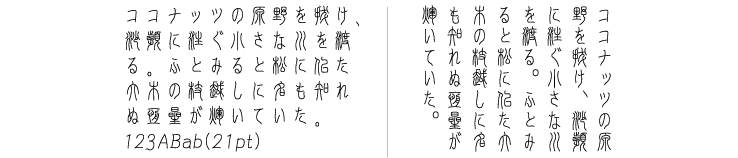 ココナッツの原野を駆け、
に注ぐ小さな川を渡
る。ふとみると松に似た
木の枝越しに名も知れ
ぬ星が輝いていた。
123ABab(21pt)
ココナッツの原
野を駆け、
に注ぐ小さな川
を渡る。ふとみ
ると松に似た
木の枝越しに名
も知れぬ星が
輝いていた。